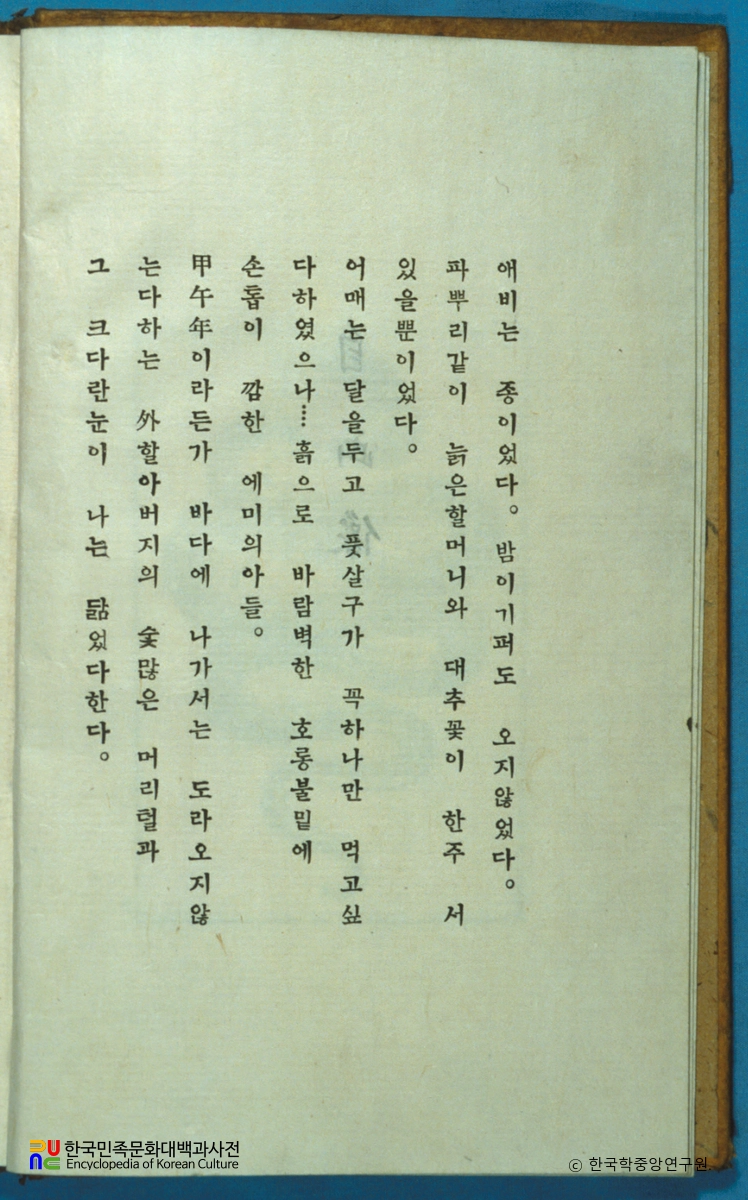 애비는 종이었다。 밤이기퍼도 오지않었다。
파뿌리같이 늙은할머니와 대추꽃이 한주 서
있을뿐이었다。
어매는 달을두고 풋살구가 꼭하나만 먹고싶
다하였으나…… 흙으로 바람벽한 호롱불밑에
손톱이 깜한 에미의아들。
甲午年이라든가 바다에 나가서는 도라오지않
는다하는 外할아버지의 숯많은 머리털과
그 크다란눈이 나는 닮었다한다。
한국민족문화대백과사전
Encyclopedia of Korean Culture
© 한국학중앙연구원.